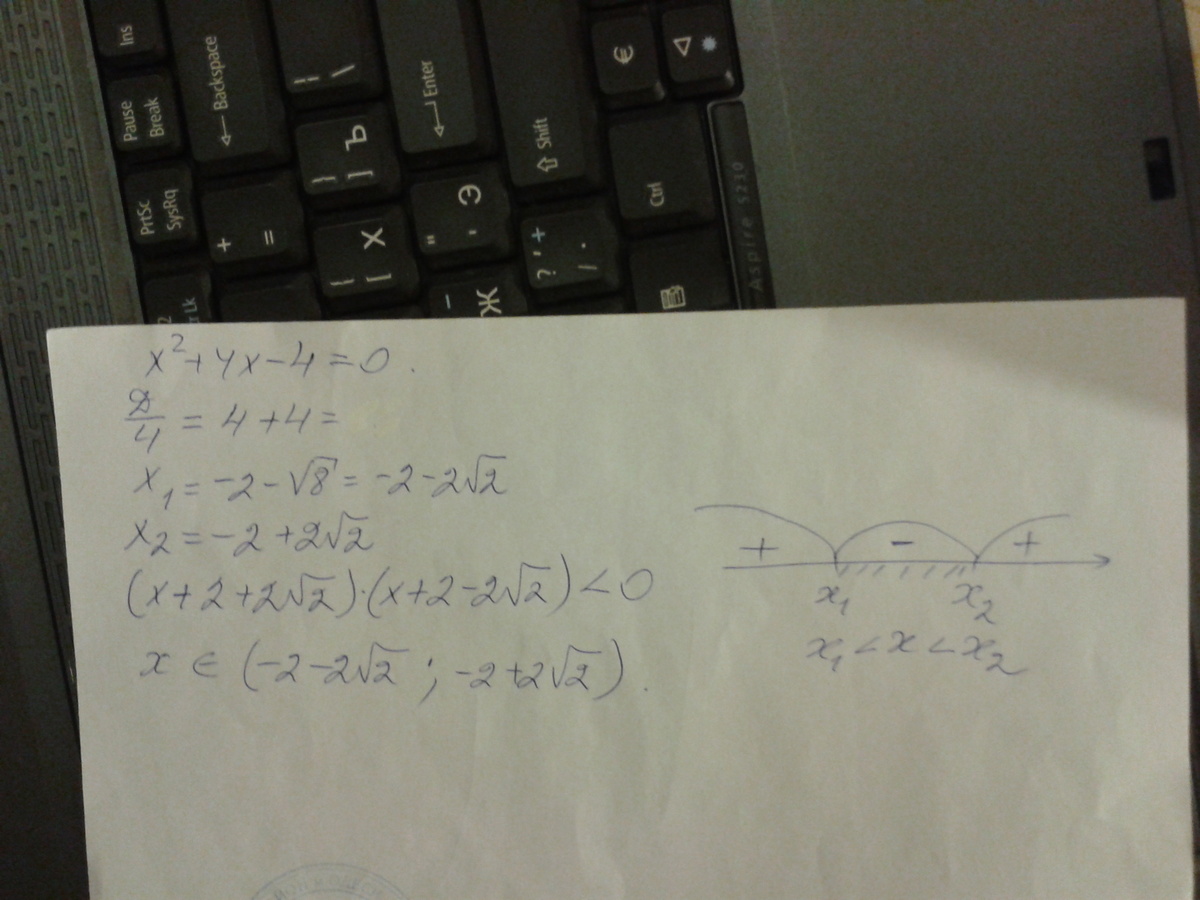 Ins
Pause
Break
PrtSc
SysRq
← Backspace
+
=
| \
} ] Ъ
{ [ Х
← Enter
" ' Э
Ж
⇧ Shift
? , +
/ .
€
Ctrl
Aspire 5210
x²+4x-4=0.
D/4 = 4+4=
x₁=-2-√8=-2-2√2
x₂=-2+2√2
(x+2+2√2)·(x+2-2√2)<0
x ∈ (-2-2√2 ; -2+2√2).
+ - +
x₁ x₂
x₁<x<x₂